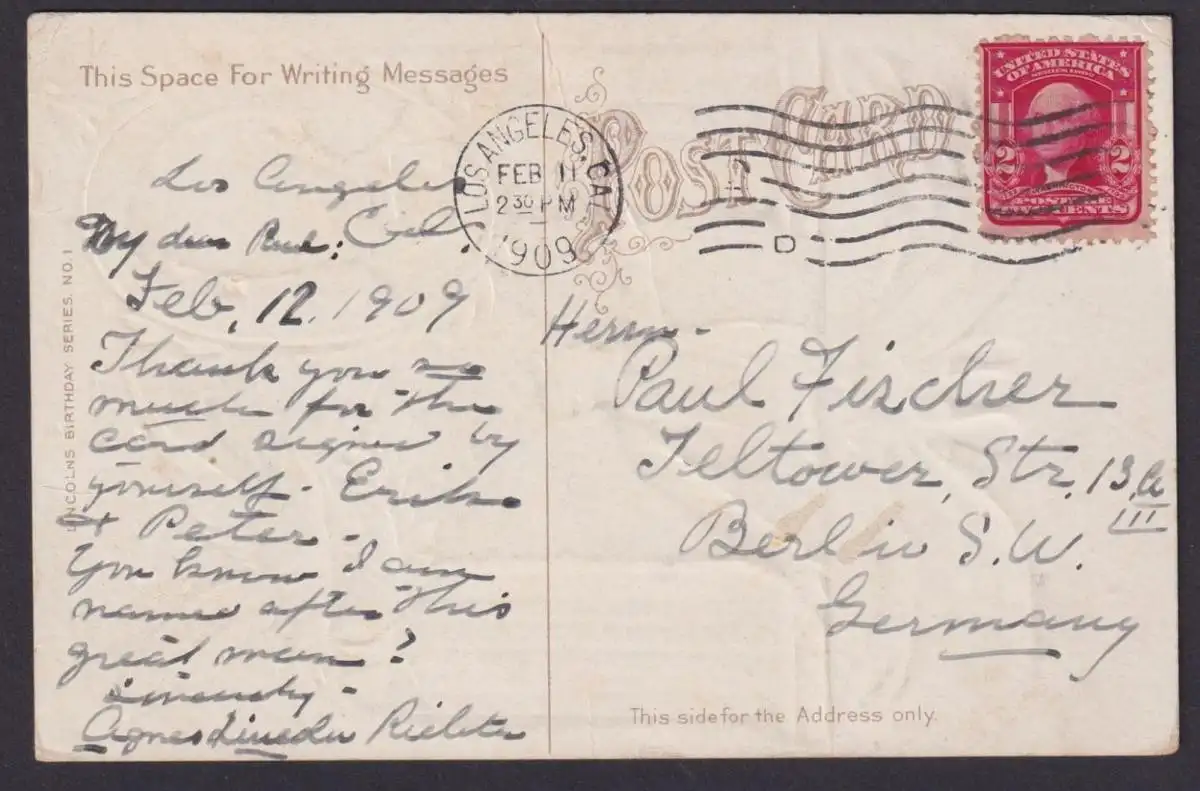 This Space For Writing Messages
POST CARD
UNITED STATES
OF AMERICA
SERIES 1902
2 2
WASHINGTON
POSTAGE
TWO CENTS
LOS ANGELES, CAL.
FEB 11
2 30 PM
1909
D
LINCOLNS BIRTHDAY SERIES. NO. 1
Los Angeles
Cal.
My dear Paul:
Feb, 12. 1909
Thank you so
much for the
card signed by
yourself - Erik
& Peter -
You know I am
named after this
great man?
Sincerely -
Agnes Lincoln Richter
Herrn -
Paul Fischer
Teltower, Str. 13, a
III
Berlin S.W.
Germany
This side for the Address only.